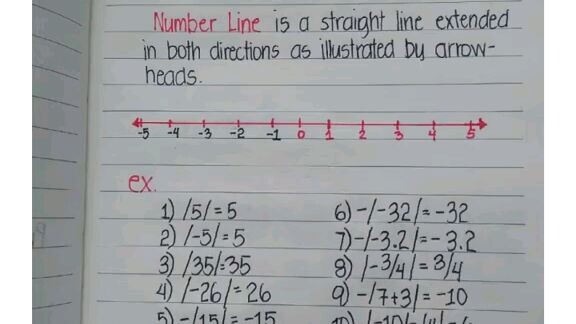 Number Line is a straight line extended
in both directions as illustrated by arrow-
heads.
-5 -4 -3 -2 -1 0 1 2 3 4 5
ex.
1) /5/=5
2) /-5/=5
3) /35/=35
4) /-26/=26
5) -/15/=-15
6) -/-32/=-32
7) -/-3.2/=-3.2
8) /-3/4/=3/4
9) -/7+3/=-10